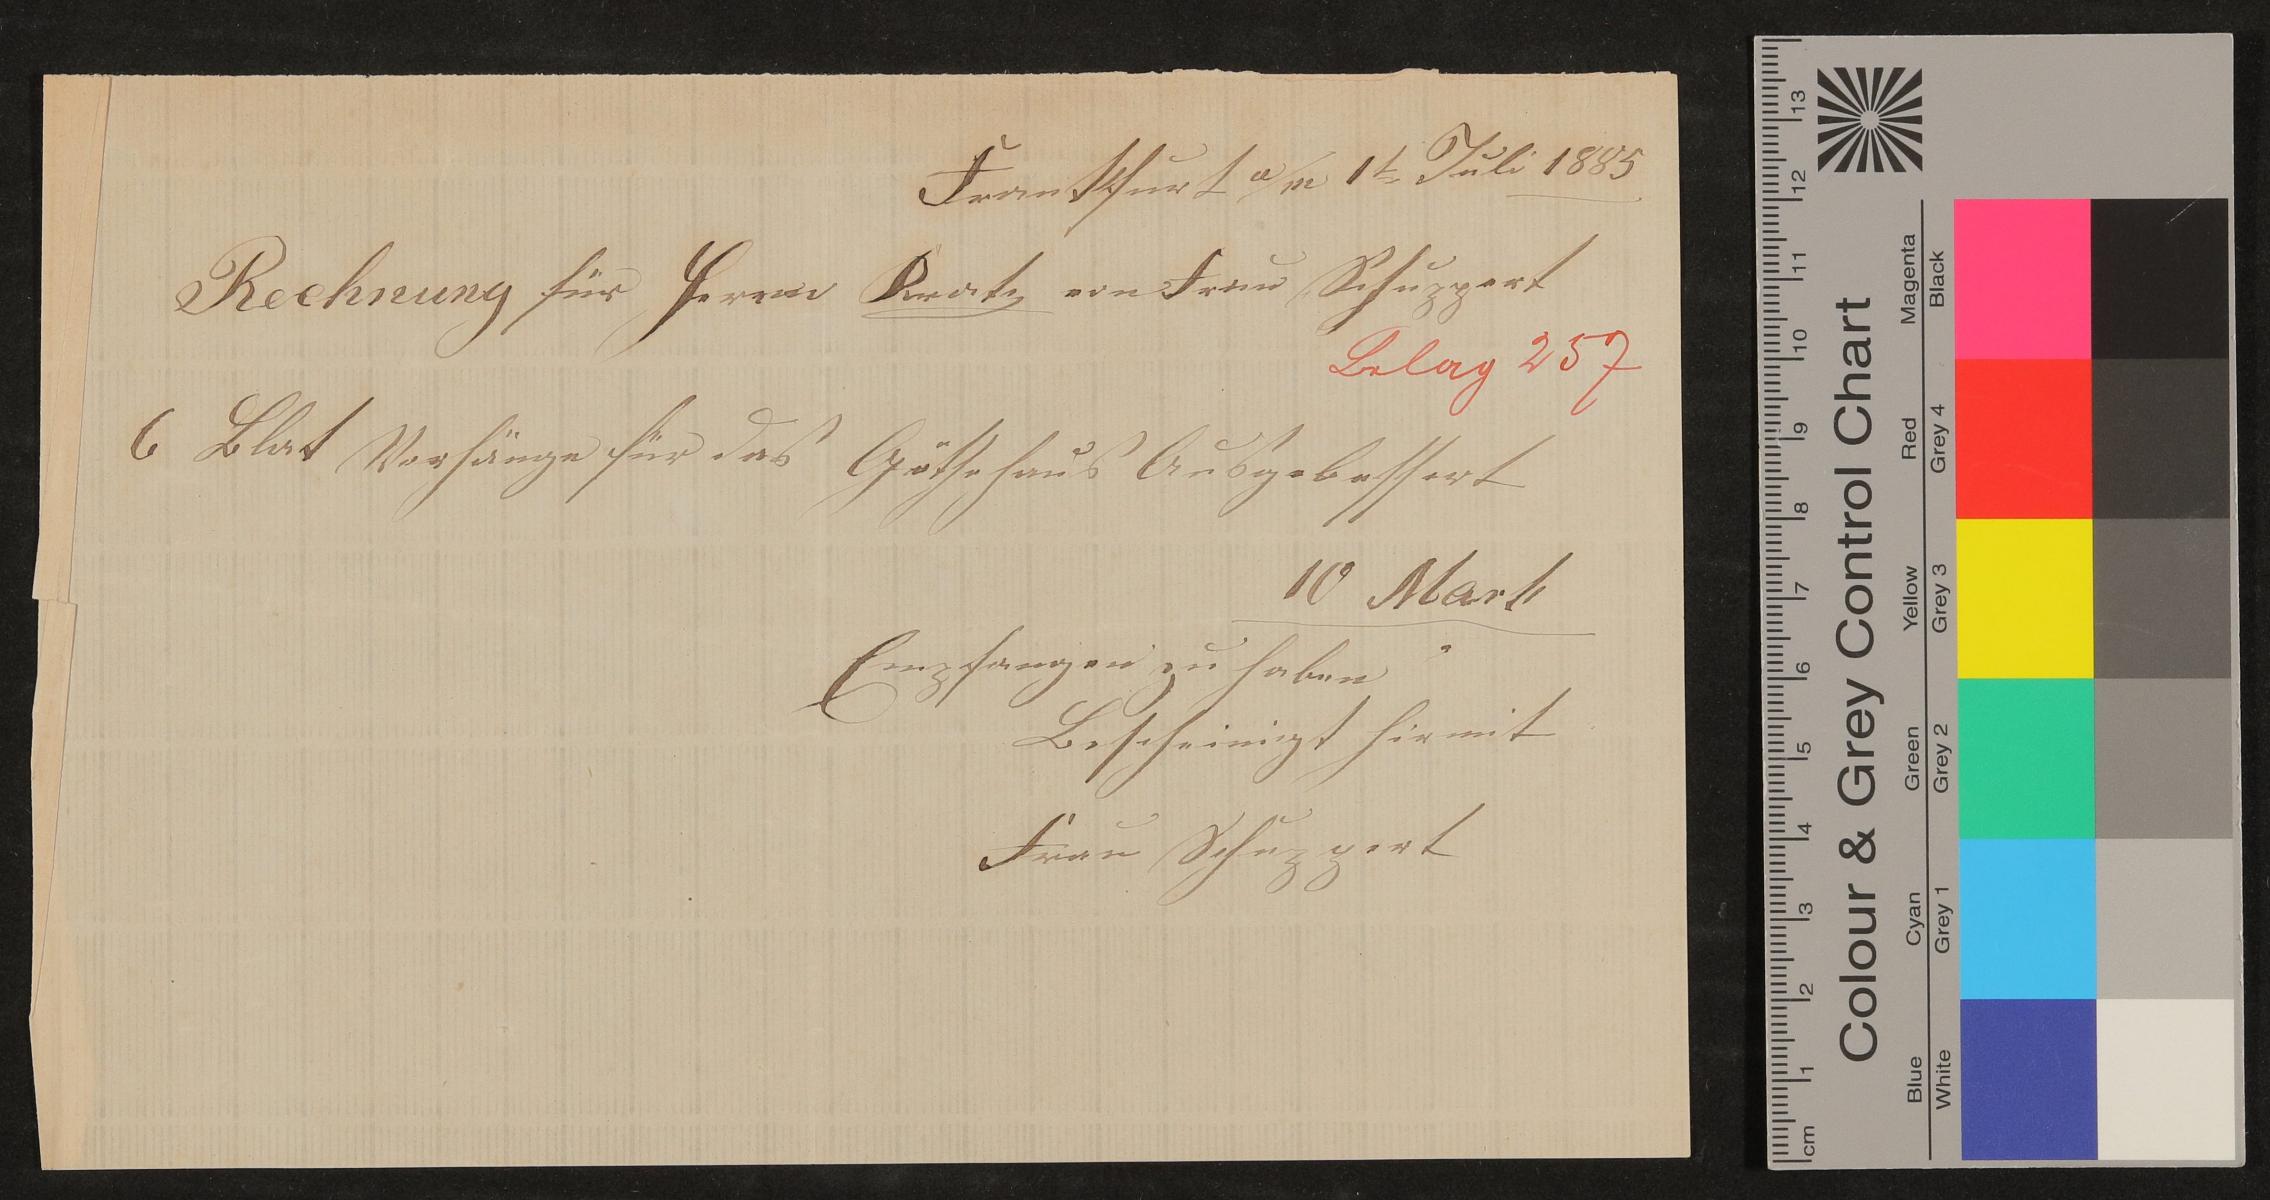 Frankfurt a/m 1t Juli 1885
Rechnung für Herrn von Frau Schuppert
Belag 257
6 Blat Vorhänge für das Göthehaus Ausgebessert
10 Mark
Empfangen zu haben
Bescheinigt hirmit
Frau Schuppert
Colour & Grey Control Chart
Blue Cyan Green Yellow Red Magenta
White Grey 1 Grey 2 Grey 3 Grey 4 Black
cm 1 2 3 4 5 6 7 8 9 10 11 12 13